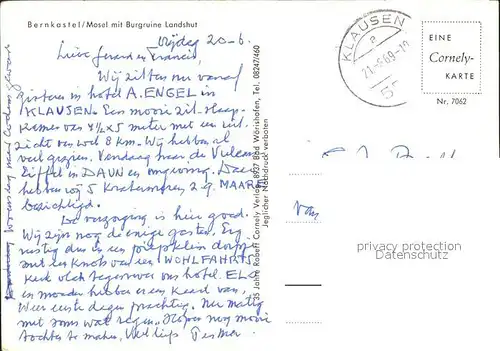 Bernkastel/Mosel mit Burgruine Landshut
Vrijdag 20-6.
Lieve Gerard en Francis,
Wij zitten nu vanaf
gisteren in hotel A. ENGEL in
KLAUSEN. Een mooie zit-slaap-
kamer van 4½ x 5 meter met een uit-
zicht van wel 8 km. Wij hebben al
veel gezien. Vandaag naar de Vulkan
Eiffel in DAUN en omgeving. Daar
hebben wij 5 Kratermeren z.g. MAAREN
bezichtigd.
De verzorging is hier goed.
Wij zijn nog de enige gasten. Erg
rustig dus in een dorpje
met een van een WOHLFAHRTS
kerk vlak tegenover ons hotel. ELS
en moeder hebben er een kaars van,
Weer eerste dagen prachtig. Nu matig
met soms wat regen. Hopen nog mooie
tochten te maken, Veel liefs
KLAUSEN
a
21.-6.69-10
55
EINE
Cornely-
KARTE
Nr. 7062
35 Jahre Robert Cornely Verlag, 8937 Bad Wörishofen, Tel. 08247/460
Jeglicher Nachdruck verboten
Van
privacy protection
Datenschutz